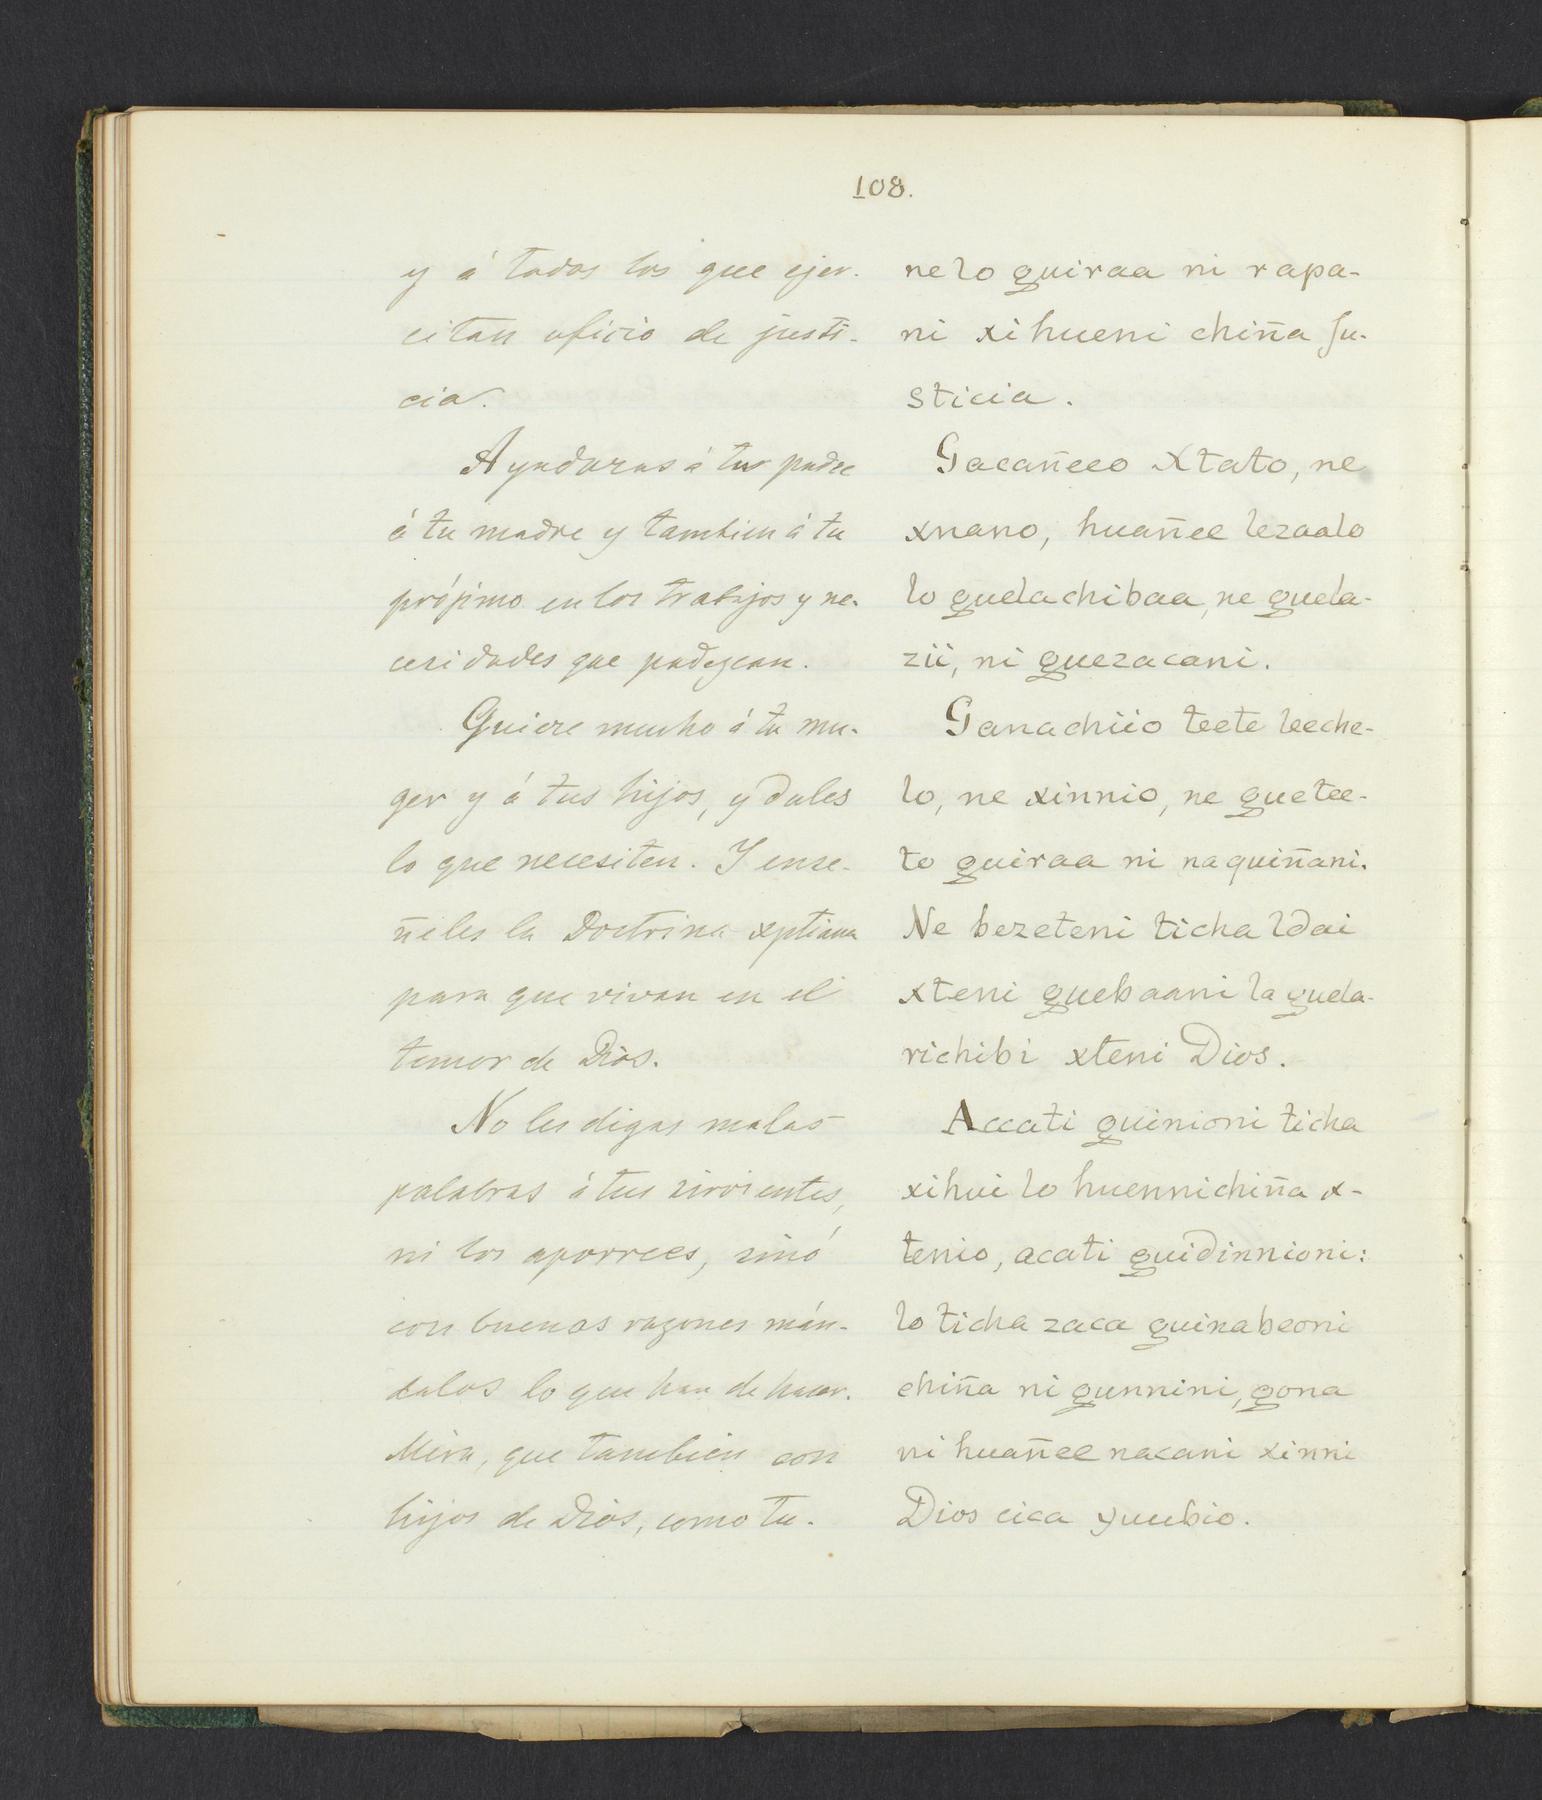 108.
y á todos los que ejer-
citan oficio de justi-
cia.
Ayudaras á tu padre
á tu madre y tambien á tu
prójimo en los trabajos y ne-
cesidades que padezcan.
Quiere mucho á tu mu-
ger y á tus hijos, y dales
lo que necesiten. Y ense-
ñeles la Doctrina xptiana
para que vivan en el
temor de Dios.
No les digas malas
palabras á tus sirvientes,
ni los aporrees, sinó
con buenas razones mán-
dalos lo que han de hacer.
Mira, que tambien son
hijos de Dios, como tu.
ne lo guiraa ni rapa-
ni xihueni chiña Ju-
sticia.
Gacañeeo Xtato, ne
xnano, huañee lezaalo
lo guelachibaa, ne guela-
zii, ni guezacani.
Ganachiio teete leeche-
lo, ne xinnio, ne guetee-
to guiraa ni naquiñani.
Ne bezeteni ticha ldai
xteni guebaani la guela-
richibi xteni Dios.
Accati guinioni ticha
xihui lo huennichiña x-
tenio, acati guidinnioni:
lo ticha zaca guinabeoni
chiña ni gunnini, gona
ni huañee nacani xinni
Dios cica yuubio.